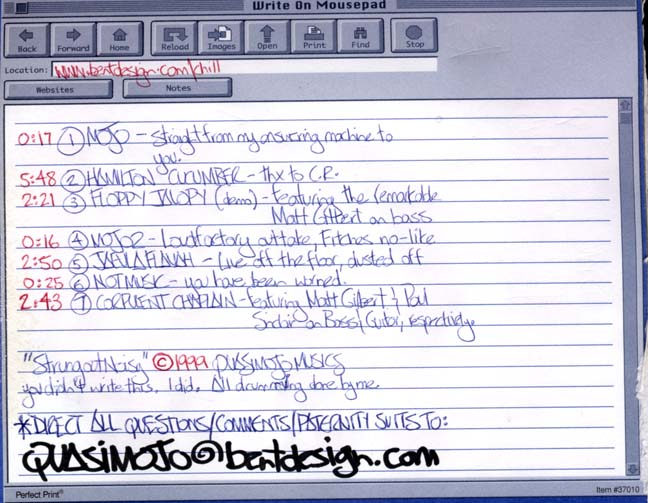 Write On Mousepad
Back Forward Home Reload Images Open Print Find Stop
Location: www.bentdesign.com/chill
Websites Notes
0:17 ① MOJO - straight from my answering machine to
you.
5:48 ② HAMILTON CUCUMBER - thx to C.R.
2:21 ③ FLOPPY JALOPY (demo) - featuring the remarkable
Matt Gilbert on bass
0:16 ④ MOJO2 - Loudfactory outtake, Fitches no-like
2:50 ⑤ - Live off the floor, dusted off
0:25 ⑥ NOTMUSIK - you have been warned.
2:43 ⑦ CORPULENT CHAPLAIN - featuring Matt Gilbert & Paul
Sinclair on Bass/Guitar, respectively.
"Strung out Noisy" © 1999 QUASIMOJO MUSICS
you didn't write this. I did. All drumming done by me.
*DIRECT ALL QUESTIONS/COMMENTS/PATERNITY SUITS TO:
QUASIMOJO@bentdesign.com
Perfect Print® Item #37010